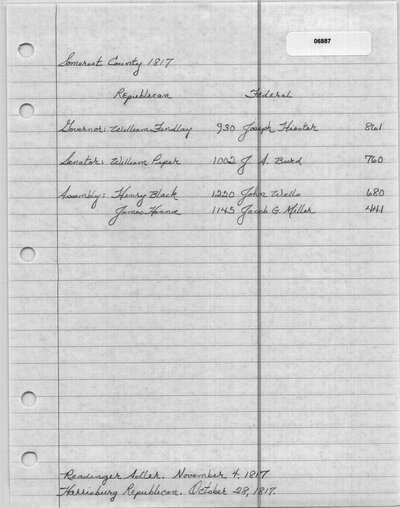 06887
Somerset County 1817
Republican Federal
Governor: William Findlay 930 Joseph Hiester 861
Senator: William Piper 1002 J. A. Burd 760
Assembly: Henry Black 1220 John Wells 680
James Hanna 1145 Jacob G. Miller 441
Readinger Adler. November 4, 1817
Harrisburg Republican. October 28, 1817.